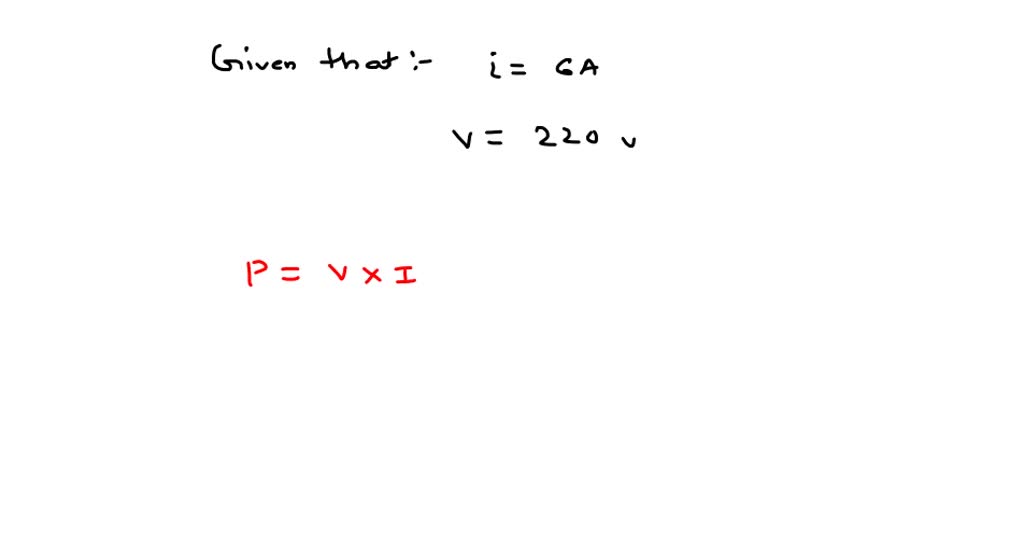 Given that :- i = 6A
V = 220 v
P = V x I